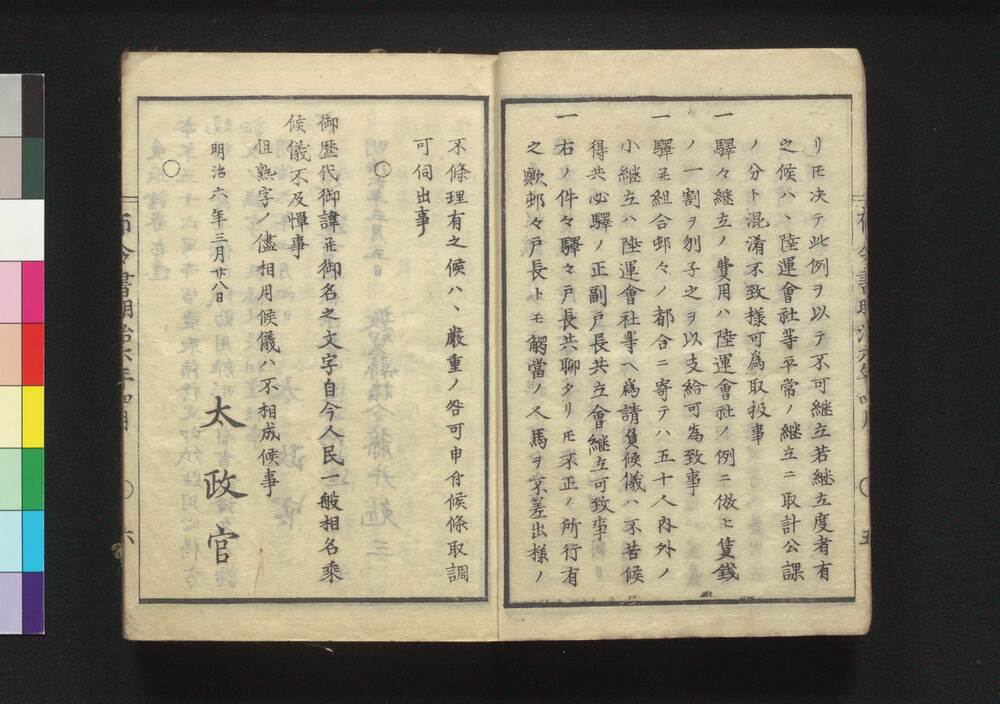 リ𪜈决テ此例ヲ以テ不可継立若継立度者有
之候ハヽ陸運會社等平常ノ継立ニ取計公課
ノ分ト混淆不致様可為取扱事
一驛々継立ノ費用ハ陸運會社ノ例ニ倣ヒ賃錢
ノ一割ヲ刎子之ヲ以支給可為致事
一驛並組合邨々ノ都合ニ寄テハ五十人内外ノ
小継立ハ陸運會社等ヘ為請負候儀ハ不苦候
得共必驛ノ正副戸長共立會継立可致事
一右ノ件々驛々戸長共聊タリ𪜈不正ノ所行有
之歟邨々戸長トモ觸當ノ人馬ヲ不差出様ノ
五
不條理有之候ハヽ嚴重ノ咎可申付候條取調
可伺出事
〇
御歴代御諱並御名之文字自今人民一般相名乘
候儀不及憚事
但熟字ノ儘相用候儀ハ不相成候事
明治六年三月廿八日
太政官
〇
布令書明治六年四月 〇 六